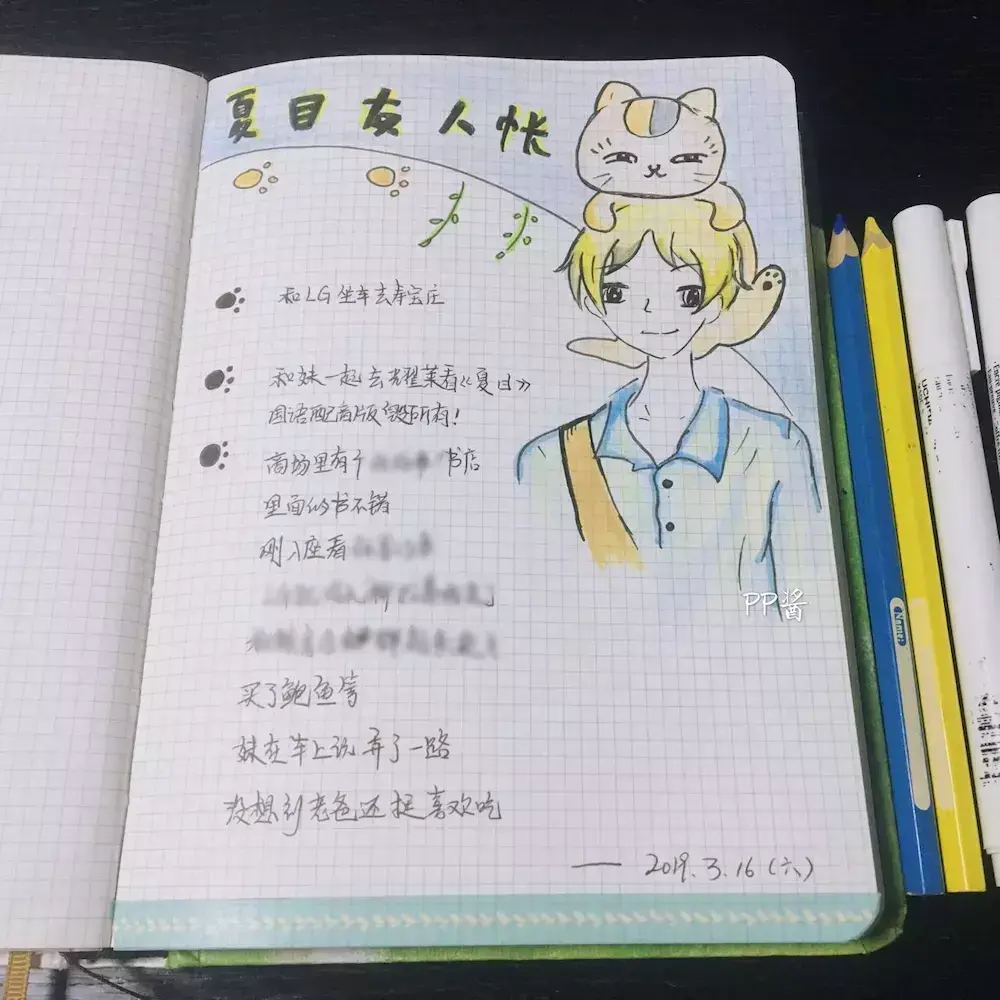 夏目友人帐
和LG坐车去寿宝庄
和妹一起去耀莱看《夏目》
国语配音版毁所有！
商场里有个 书店
里面的书不错
刚入座看
买了鲍鱼
妹在车上说弄了一路
没想到老爸还挺喜欢吃
—— 2019.3.16(六)
PP酱